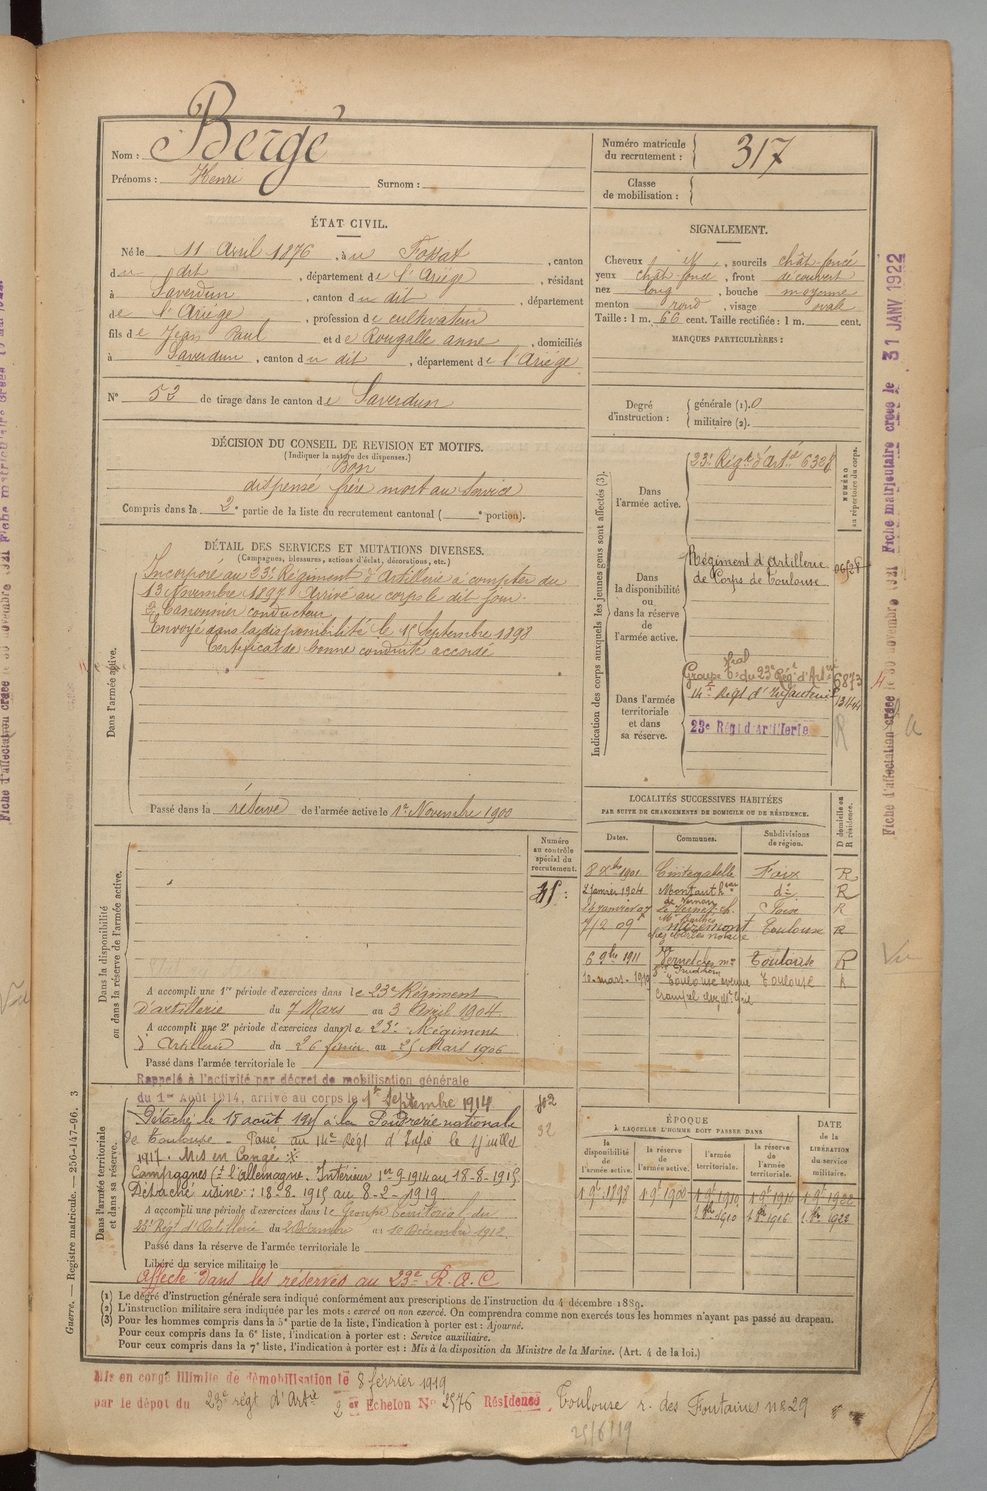 Nom : Bergé
Prénoms : Henri Surnom :
Numéro matricule du recrutement : 317
Classe de mobilisation :
ÉTAT CIVIL.
Né le 11 Avril 1876, à u Fossat, canton
du dit, département de l'Ariège, résidant
à Saverdun, canton du dit, département
de l'Ariège, profession de cultivateur
fils de Jean Paul et de Rougalle anne, domiciliés
à Saverdun, canton du dit, département de l'Ariège.
N° 53 de tirage dans le canton de Saverdun
SIGNALEMENT.
Cheveux, sourcils chât-foncé
yeux chât-foncé, front découvert
nez long, bouche moyenne
menton rond, visage ovale
Taille : 1 m. 66 cent. Taille rectifiée : 1 m. cent.
MARQUES PARTICULIÈRES :
Degré d'instruction : générale (1). 0
militaire (2).
DÉCISION DU CONSEIL DE REVISION ET MOTIFS.
(Indiquer la nature des dispenses.)
Bon
dispensé frère mort au service
Compris dans la 2e partie de la liste du recrutement cantonal ( e portion).
DÉTAIL DES SERVICES ET MUTATIONS DIVERSES.
(Campagnes, blessures, actions d'éclat, décorations, etc.)
Dans l'armée active.
Incorporé au 23e Régiment d'Artillerie à compter du
13 Novembre 1897. Arrivé au corps le dit jour.
2e Canonnier conducteur
Envoyé dans la disponibilité le 15 Septembre 1898
Certificat de bonne conduite accordé
Passé dans la réserve de l'armée active le 1er Novembre 1900
Indication des corps auxquels les jeunes gens sont affectés (3).
NUMÉRO au répertoire du corps.
Dans l'armée active.
23e Régt d'Artie 6328
Dans la disponibilité ou dans la réserve de l'armée active.
Régiment d'Artillerie
de Corps de Toulouse
Dans l'armée territoriale et dans sa réserve.
Groupe tal du 23e Régt d'Artie 6873
14e Régt d'Infanterie
23e Régt d'Artillerie
R
LOCALITÉS SUCCESSIVES HABITÉES
PAR SUITE DE CHANGEMENTS DE DOMICILE OU DE RÉSIDENCE.
Dates. Communes. Subdivisions de région. D domicile ou R résidence.
8 Xbre 1901 Cintegabelle Foix R
2 janvier 1904 Montaut do R
Le Vernet Foix R
7/2 09 Miremont Toulouse R
6 9bre 1911 Toulouse R
10 mars 1919 Toulouse avenue Toulouse R
Crampel
Numéro au contrôle spécial du recrutement.
Dans la disponibilité ou dans la réserve de l'armée active.
A accompli une 1re période d'exercices dans le 23e Régiment
d'artillerie du 7 Mars au 3 Avril 1904
A accompli une 2e période d'exercices dans le 23e Régiment
d'Artillerie du 26 février au 25 Mars 1906
Passé dans l'armée territoriale le
Dans l'armée territoriale et dans sa réserve.
Rappelé à l'activité par décret de mobilisation générale
du 1er Août 1914, arrivé au corps le 1er Septembre 1914
Détaché le 18 août 1915 à la Poudrerie nationale
de Toulouse - Passé au 14e Régt d'Infie le 1 juillet
1917. Mis en Congé
Campagnes Ct l'allemagne. Intérieur 1er-9-1914 au 18-8-1915.
Détaché usine : 18-8-1915 au 8-2-1919
A accompli une période d'exercices dans le Groupe territorial du
23e Régt d'Artillerie du 2 Décembre au 10 Décembre 1912.
Passé dans la réserve de l'armée territoriale le
Libéré du service militaire le
Affecté dans les réserves au 23e R.A.C
ÉPOQUE
À LAQUELLE L'HOMME DOIT PASSER DANS
la disponibilité de l'armée active. la réserve de l'armée active. l'armée territoriale. la réserve de l'armée territoriale. DATE de la LIBÉRATION du service militaire.
1 9e 1898 1 9e 1900 1 9e 1910 1 9e 1916 1 9e 1922
1 8e 1910 1 8e 1916 1 8e 1922
(1) Le dégré d'instruction générale sera indiqué conformément aux prescriptions de l'instruction du 4 décembre 1889.
(2) L'instruction militaire sera indiquée par les mots : exercé ou non exercé. On comprendra comme non exercés tous les hommes n'ayant pas passé au drapeau.
(3) Pour les hommes compris dans la 5e partie de la liste, l'indication à porter est : Ajourné.
Pour ceux compris dans la 6e liste, l'indication à porter est : Service auxiliaire.
Pour ceux compris dans la 7e liste, l'indication à porter est : Mis à la disposition du Ministre de la Marine. (Art. 4 de la loi.)
Mis en congé illimité de démobilisation le 8 février 1919
par le dépot du 23e régt d'Artie 2e Echelon No 2576 Résidence Toulouse r. des Fontaines no 29
25/6/19
Guerre. — Registre matricule. — 256-147-96. 3
Fiche matriculaire créée le 31 JANV 1922